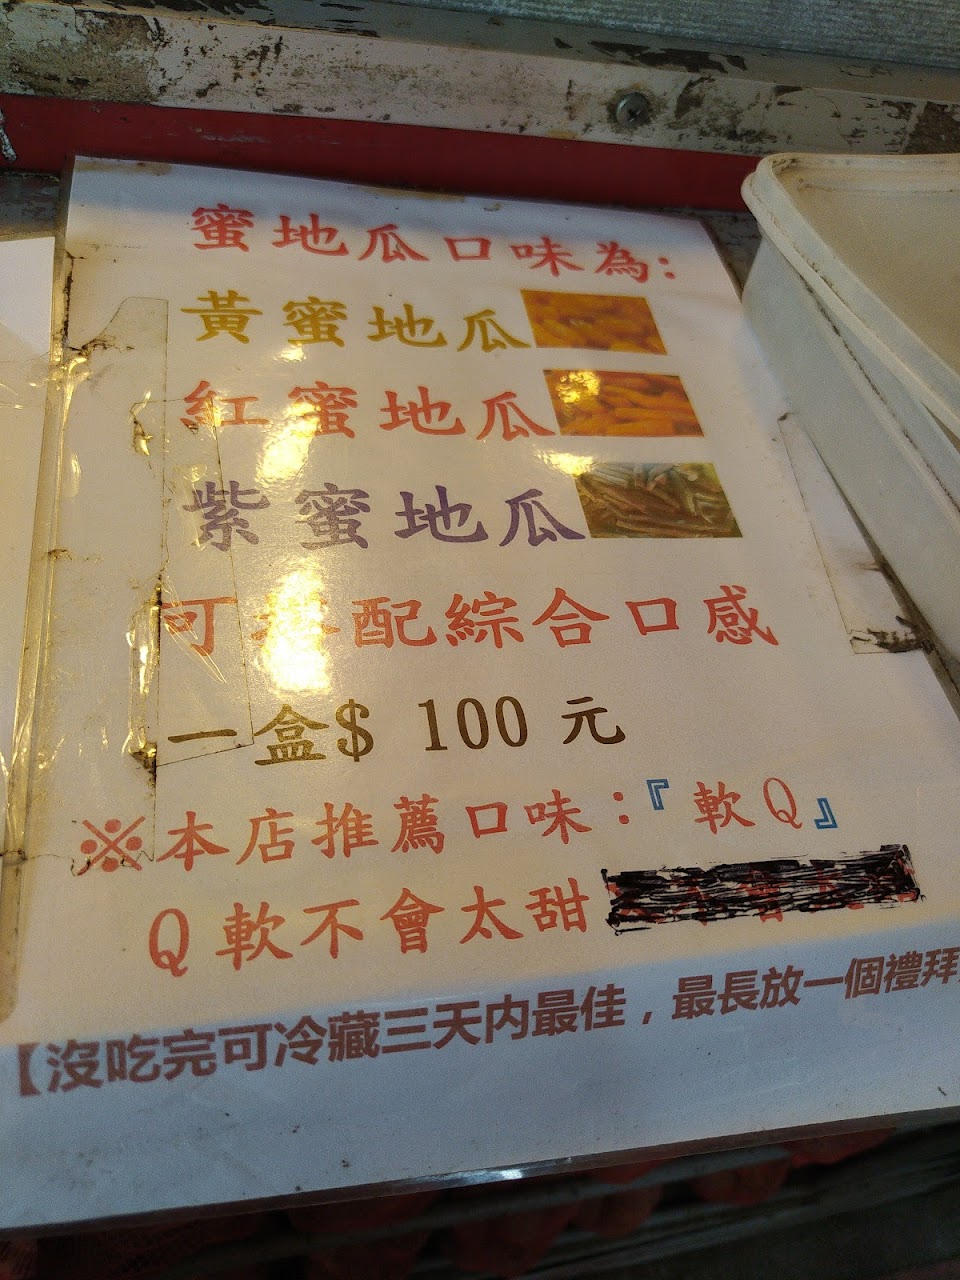 蜜地瓜口味為:
黃蜜地瓜
紅蜜地瓜
紫蜜地瓜
可搭配綜合口感
一盒$ 100 元
※本店推薦口味：『軟Q』
Q軟不會太甜
【沒吃完可冷藏三天內最佳，最長放一個禮拜